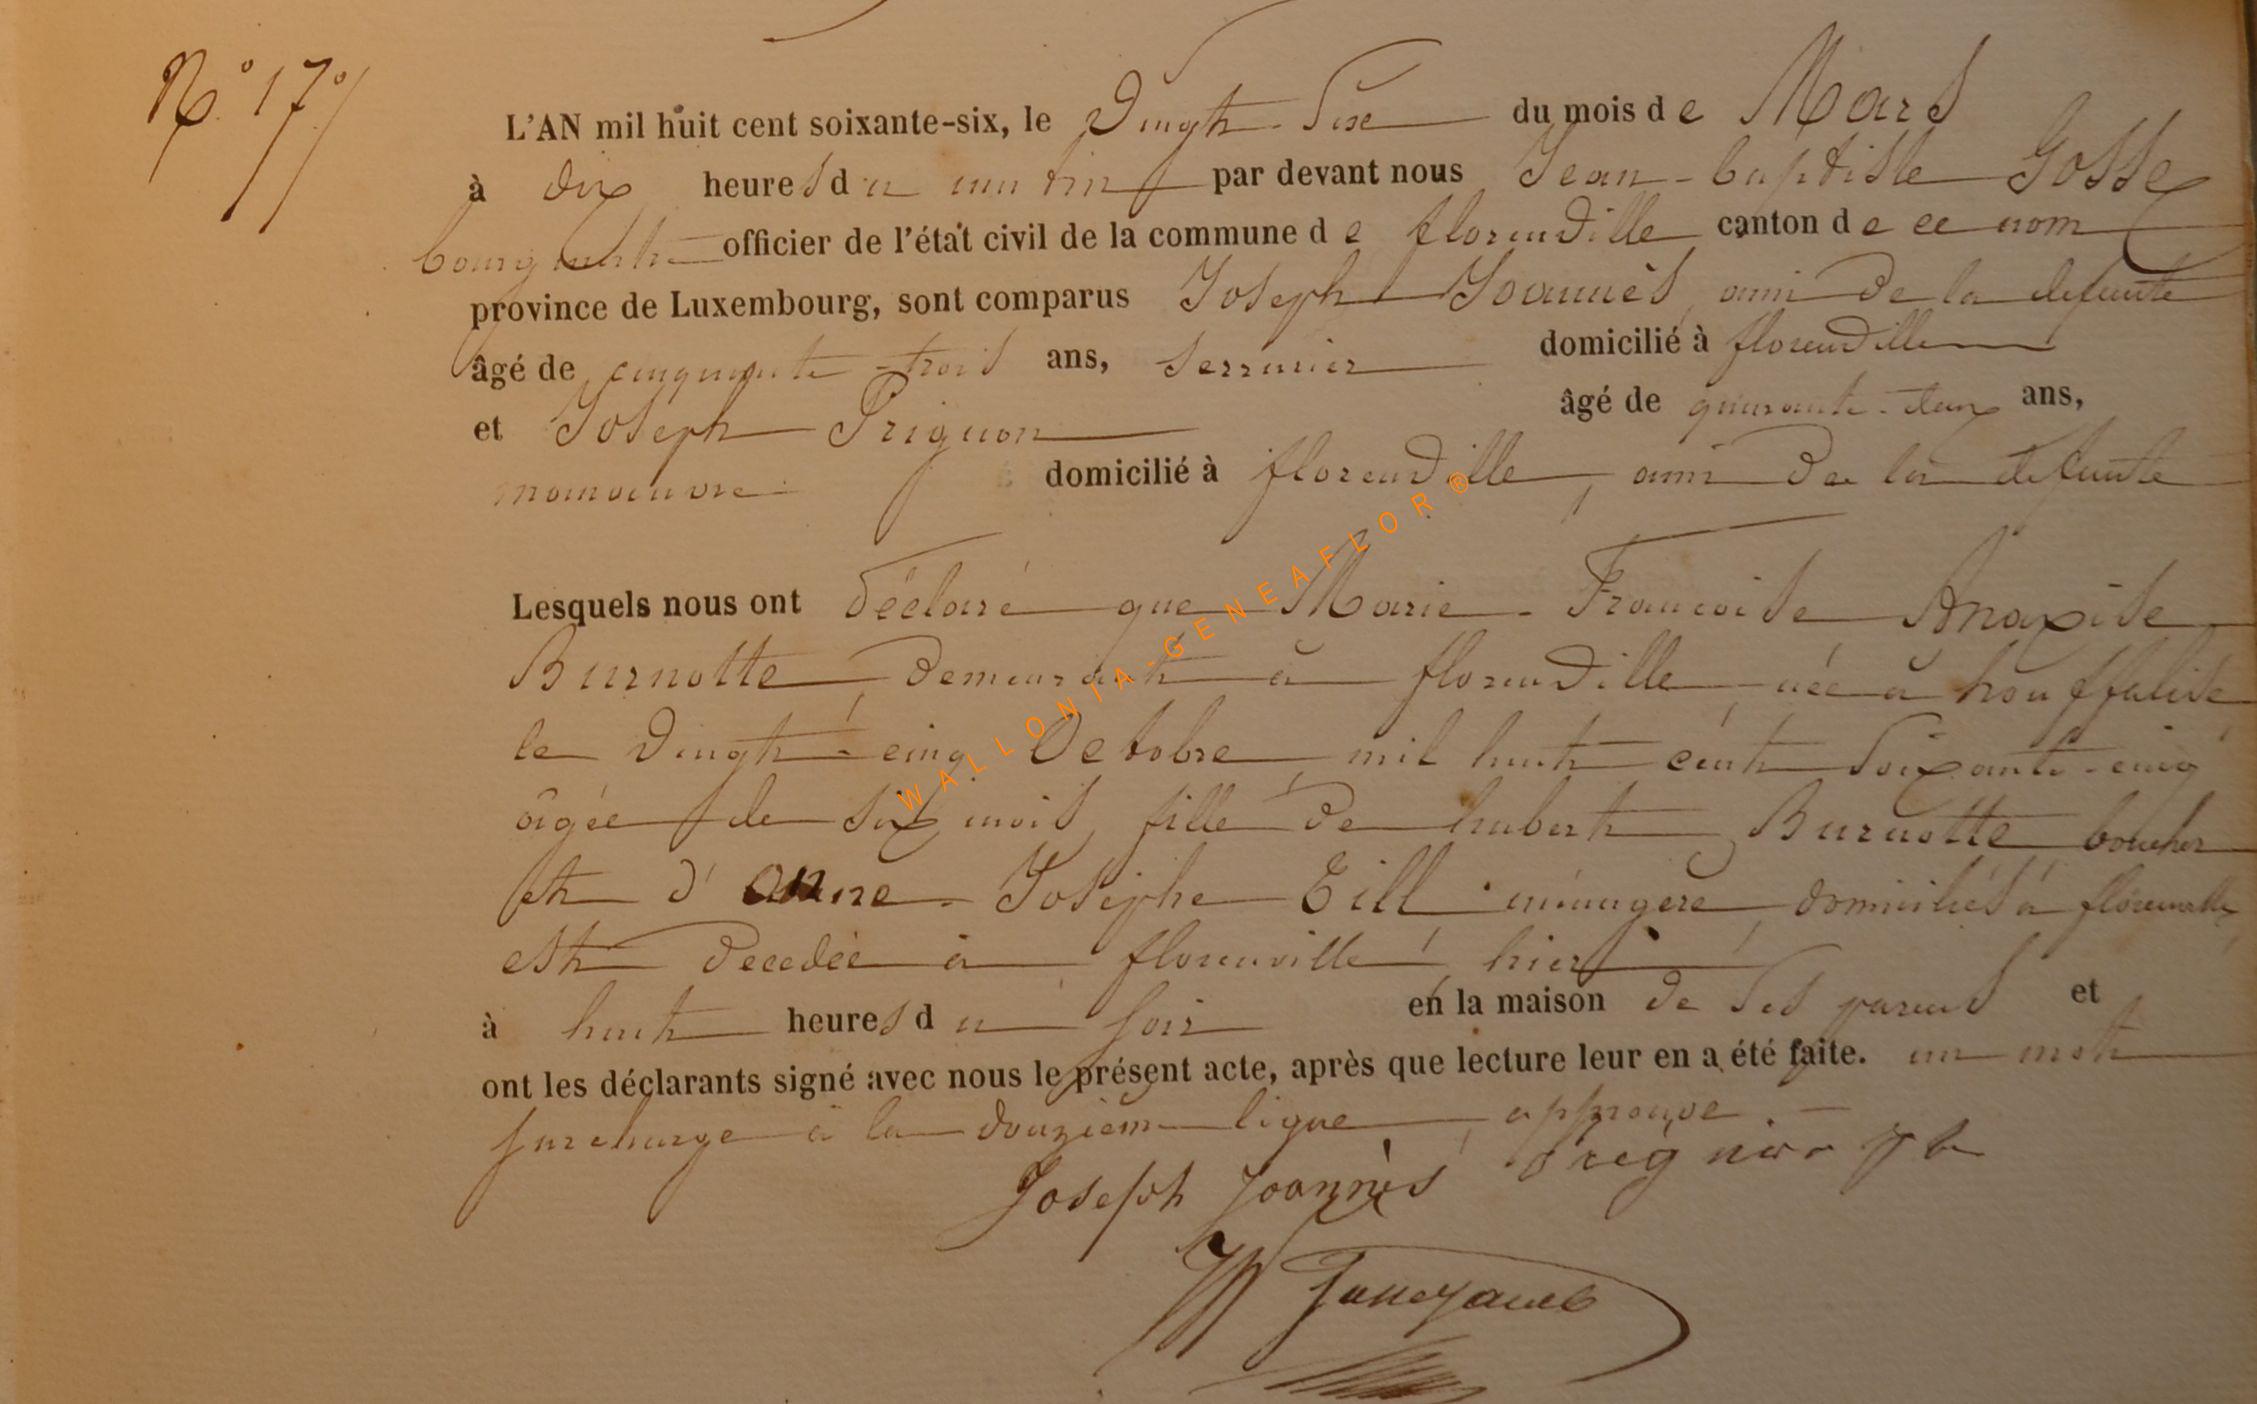 N.° 17
L'AN mil huit cent soixante-six, le vingt-six du mois de Mars
à dix heures du matin par devant nous Jean-baptiste Gosse
bourgmestre officier de l'état civil de la commune de florenville canton de ce nom
province de Luxembourg, sont comparus Joseph Joannès, ami de la défunte
âgé de cinquante-trois ans, serrurier domicilié à florenville
et Joseph Prignon âgé de quarante-deux ans,
manoeuvre domicilié à florenville, ami de la défunte
Lesquels nous ont déclaré que Marie-Francoise Anaxise
Burnotte, demeurant à florenville, née à houffalise
le vingt-cinq Octobre mil huit cent soixante-cinq
âgée de six mois, fille de hubert Burnotte boucher
et d'anne-Josèphe Till ménagère, domiciliés à florenville
est décedée à florenville, hier
à huit heures du soir en la maison de ses parens et
ont les déclarants signé avec nous le présent acte, après que lecture leur en a été faite. un mot
surchargé à la douzième ligne, approuvé.
Joseph Joannès
WALLONIA-GENEAFLOR®